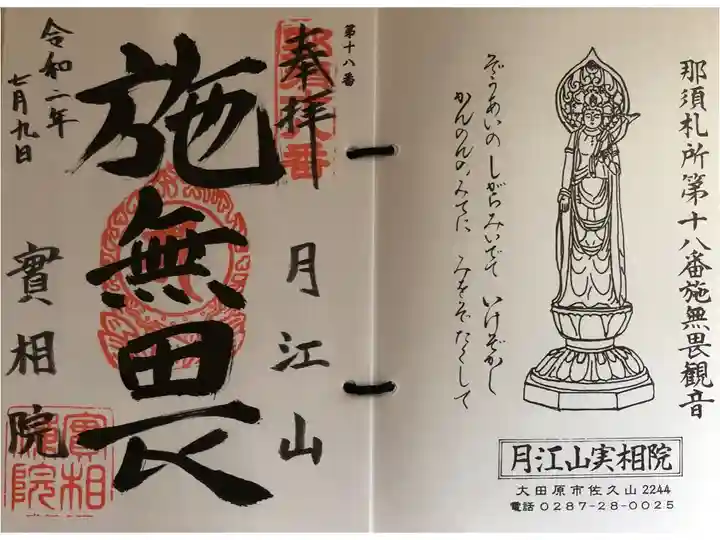 那須札所第十八番施無畏観音
ぞうあいの しがらみいでて いけぞかし
かんのんの みてに みをぞたくして
月江山実相院
大田原市佐久山2244
電話0287-28-0025
第十八番
奉拝
月江山
施無畏
令和二年
七月九日
實相院
實相院